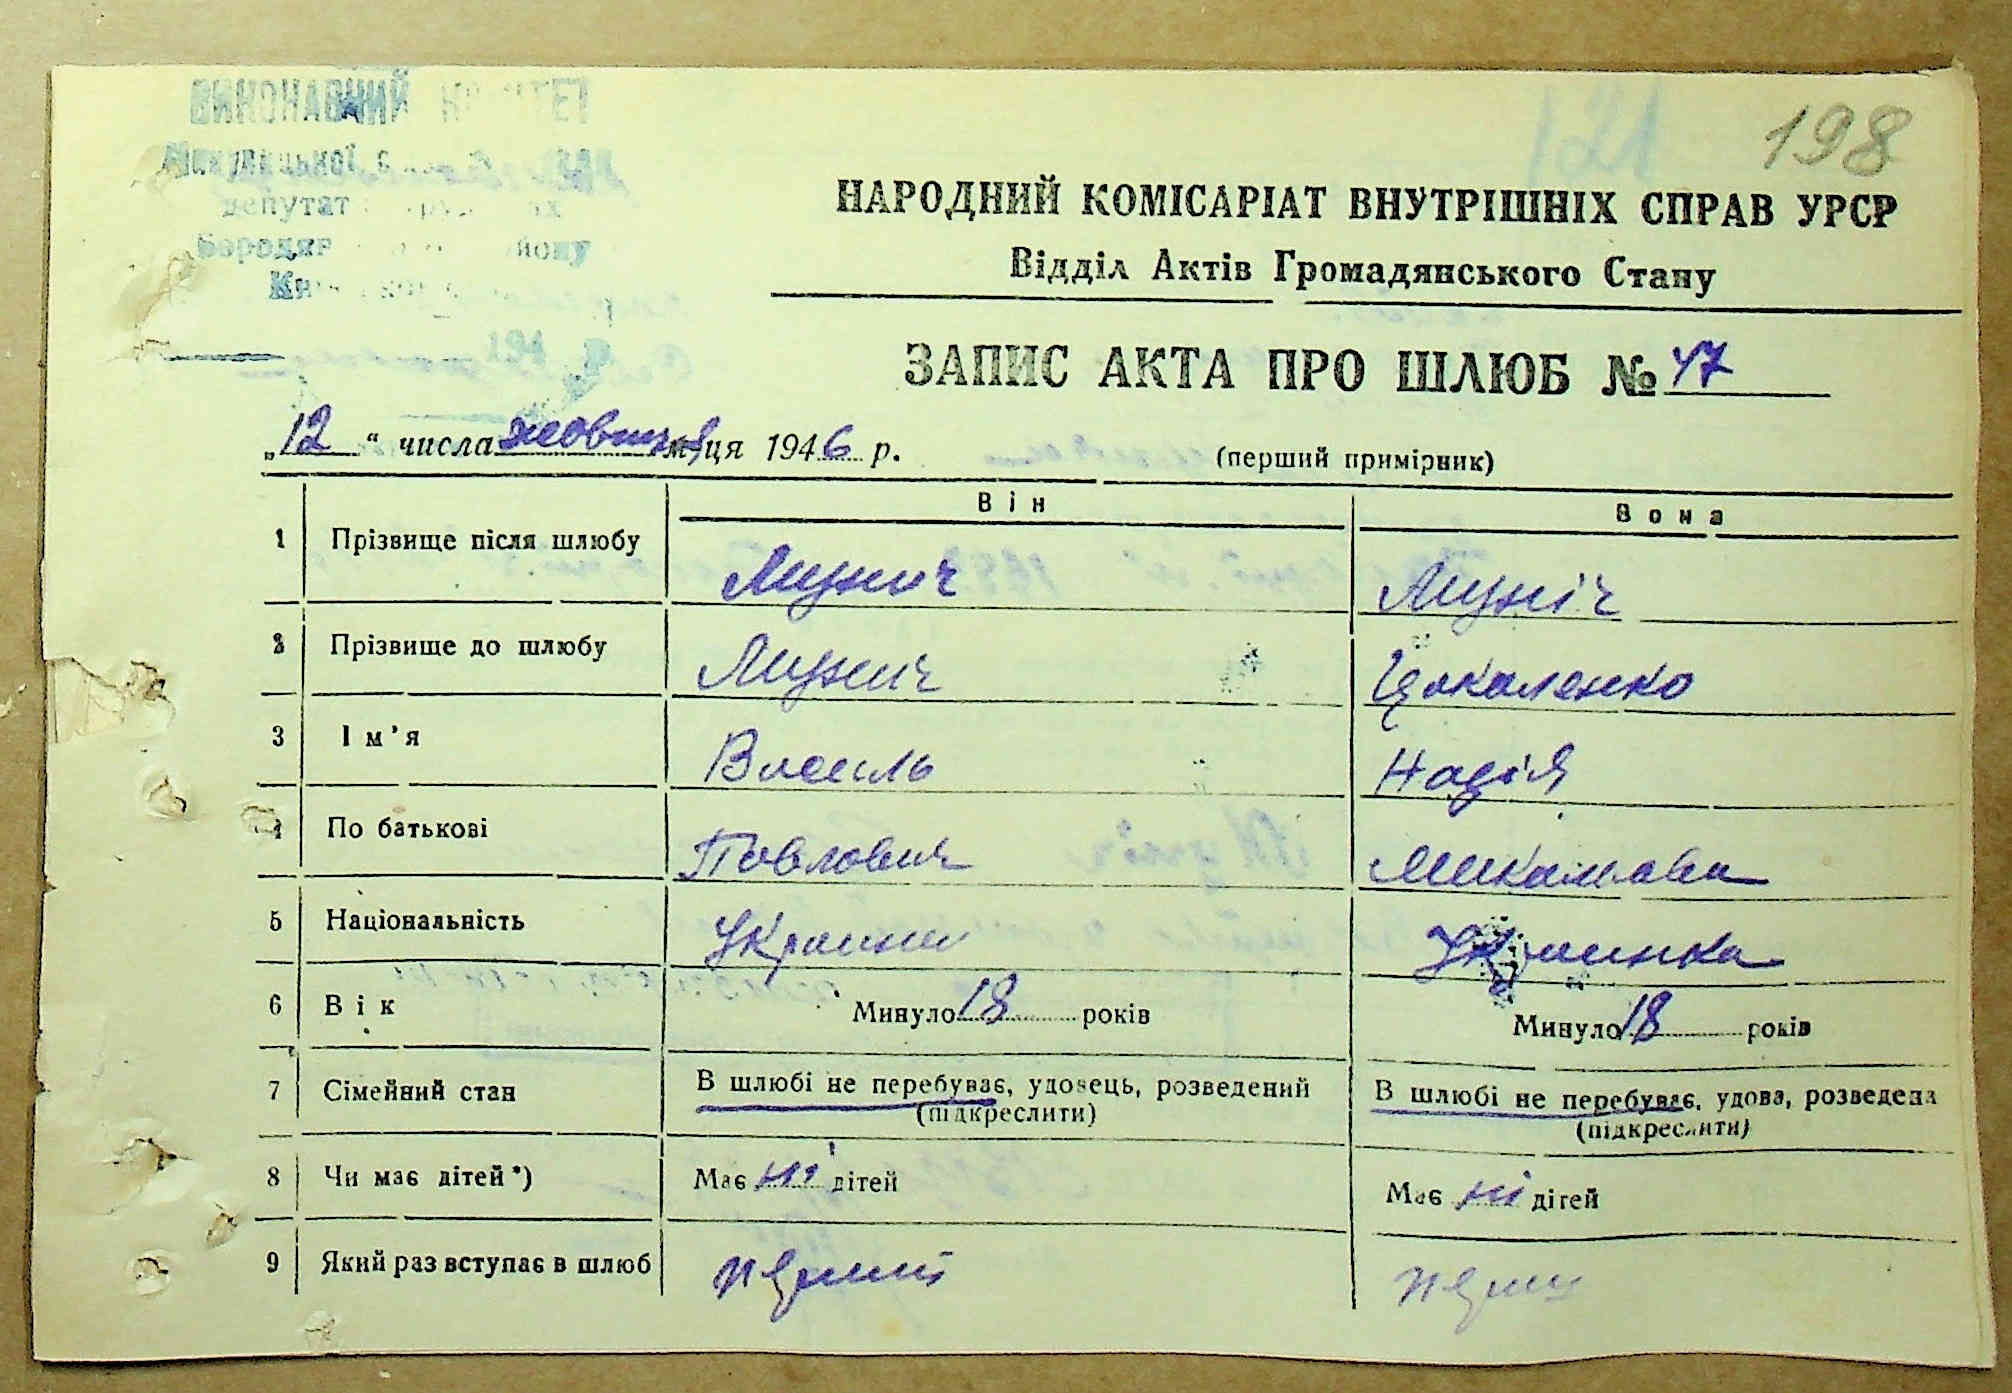 198
ВИКОНАВЧИЙ КОМІТЕТ
депутатів
194 р.
НАРОДНИЙ КОМІСАРІАТ ВНУТРІШНІХ СПРАВ УРСР
Відділ Актів Громадянського Стану
ЗАПИС АКТА ПРО ШЛЮБ № 47
„12 " числа жовтня м-ця 1946 р.
(перший примірник)
Він Вона
1 Прізвище після шлюбу Мунич Муніч
2 Прізвище до шлюбу Мунич Цокаленко
3 Ім'я Василь Надія
4 По батькові Павлович
5 Національність Украинка
6 Вік Минуло 18 років Минуло 18 років
7 Сімейний стан В шлюбі не перебуває, удовець, розведений В шлюбі не перебуває, удова, розведена
(підкреслити) (підкреслити)
8 Чи має дітей *) Має ні дітей Має ні дітей
9 Який раз вступає в шлюб перший